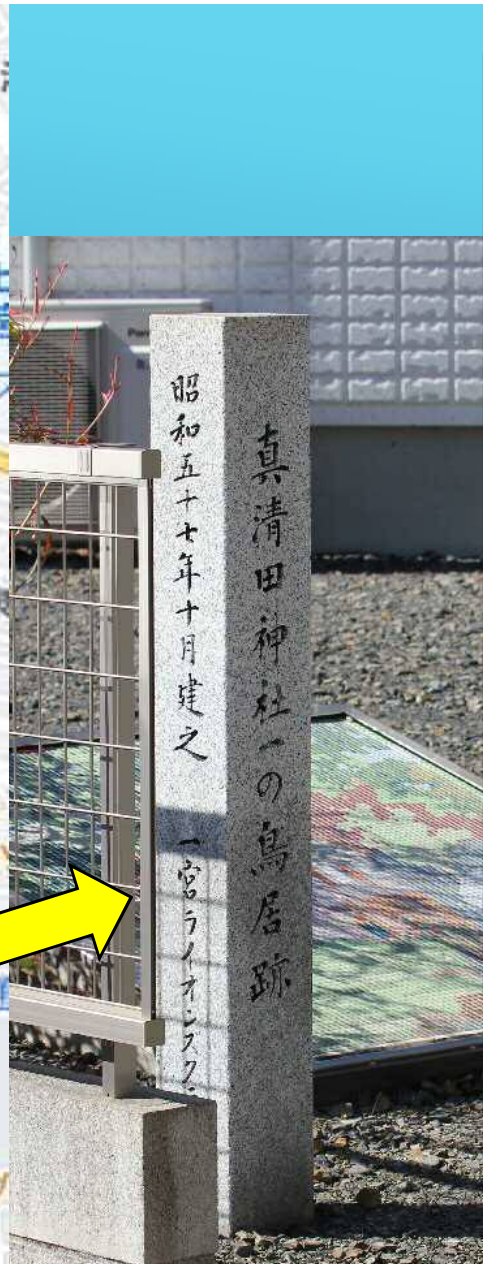 真清田神社一の鳥居跡
昭和五十七年十月建之 一宮ライオンズク